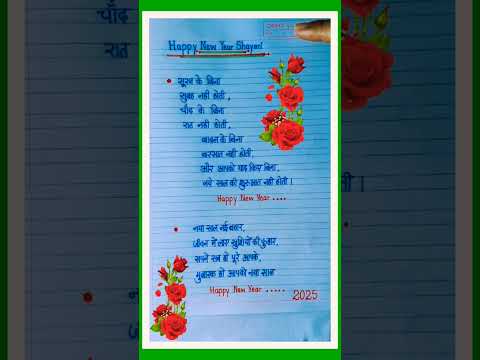 Happy New Year Shayari
सूरज के बिना
सुबह नहीं होती,
चाँद के बिना
रात नहीं होती,
बादल के बिना
बरसात नहीं होती,
और आपको याद किए बिना,
नये साल की शुरुआत नहीं होती।
Happy New Year ....
नया साल नई बहार,
जीवन में लाए खुशियों की फुहार,
सपने सब हो पूरे आपके,
मुबारक हो आपको नया साल
Happy New Year .....
2025
चाँद
रात